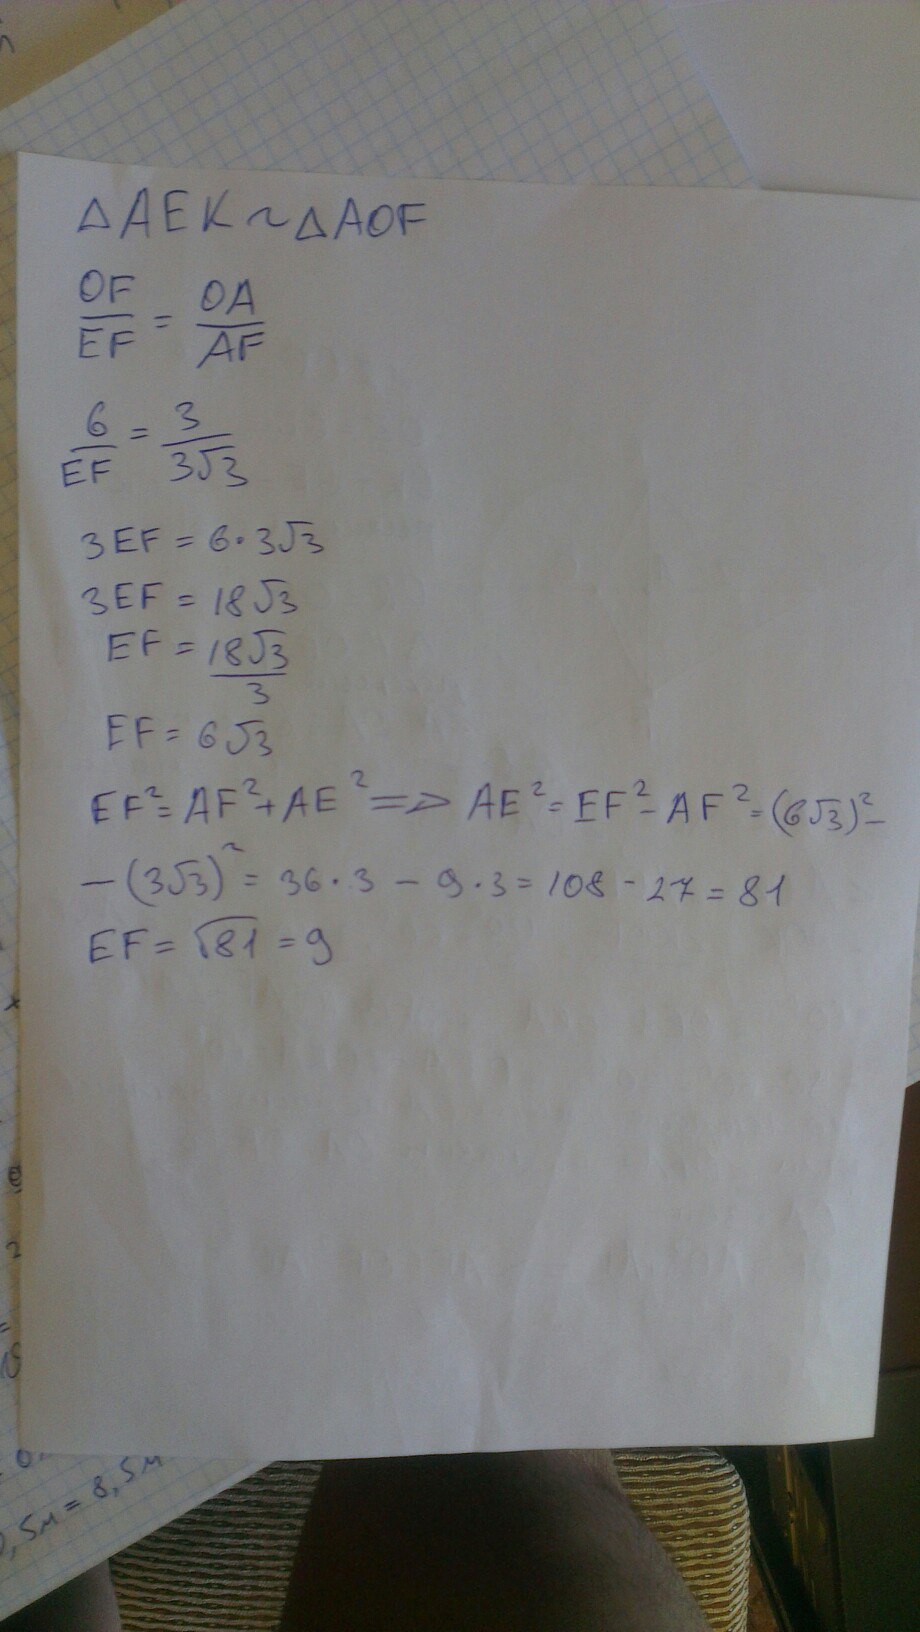 △AEK ~ △AOF
OF/EF = OA/AF
6/EF = 3/3√3
3EF = 6·3√3
3EF = 18√3
EF = 18√3/3
EF = 6√3
EF² = AF² + AE² => AE² = EF² - AF² = (6√3)² -
- (3√3)² = 36·3 - 9·3 = 108 - 27 = 81
EF = √81 = 9
,5м = 8,5м